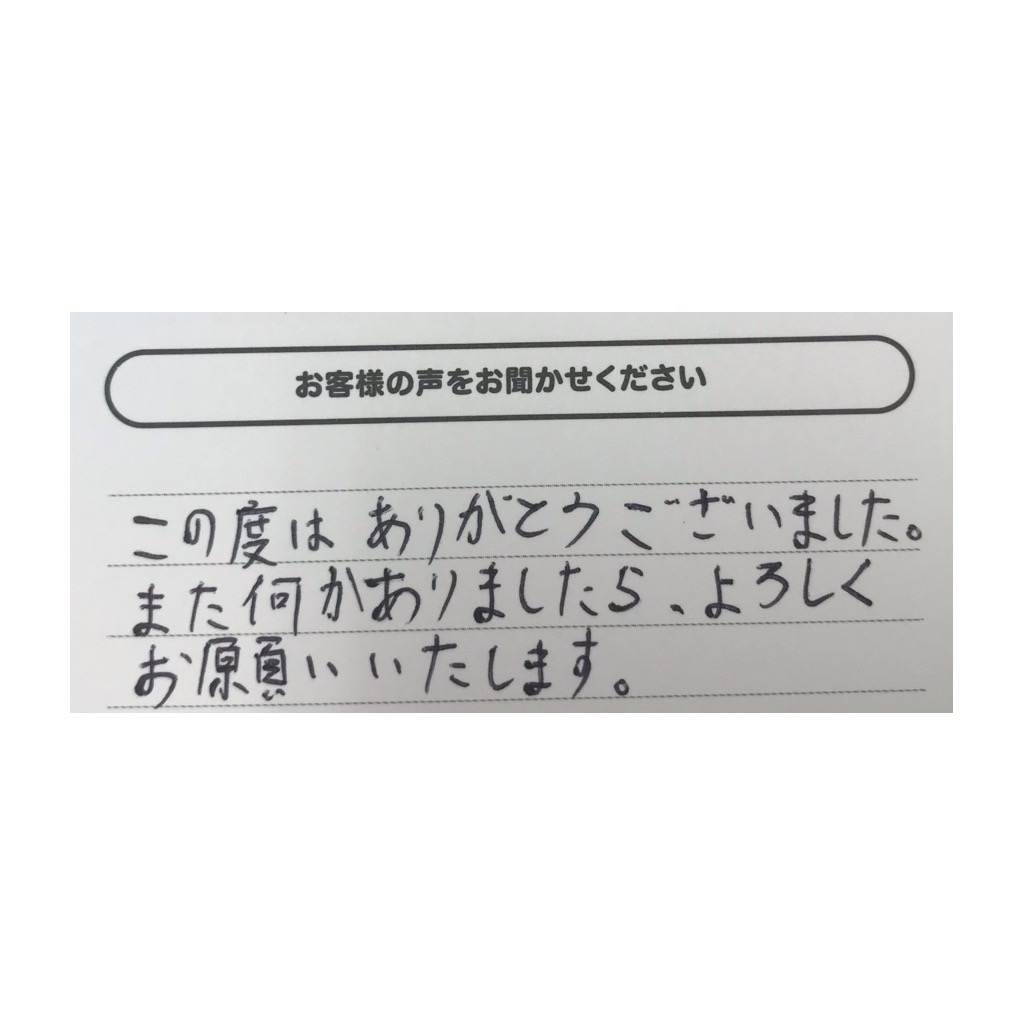 お客様の声をお聞かせください
この度はありがとうございました。
また何かありましたら、よろしく
お願いいたします。